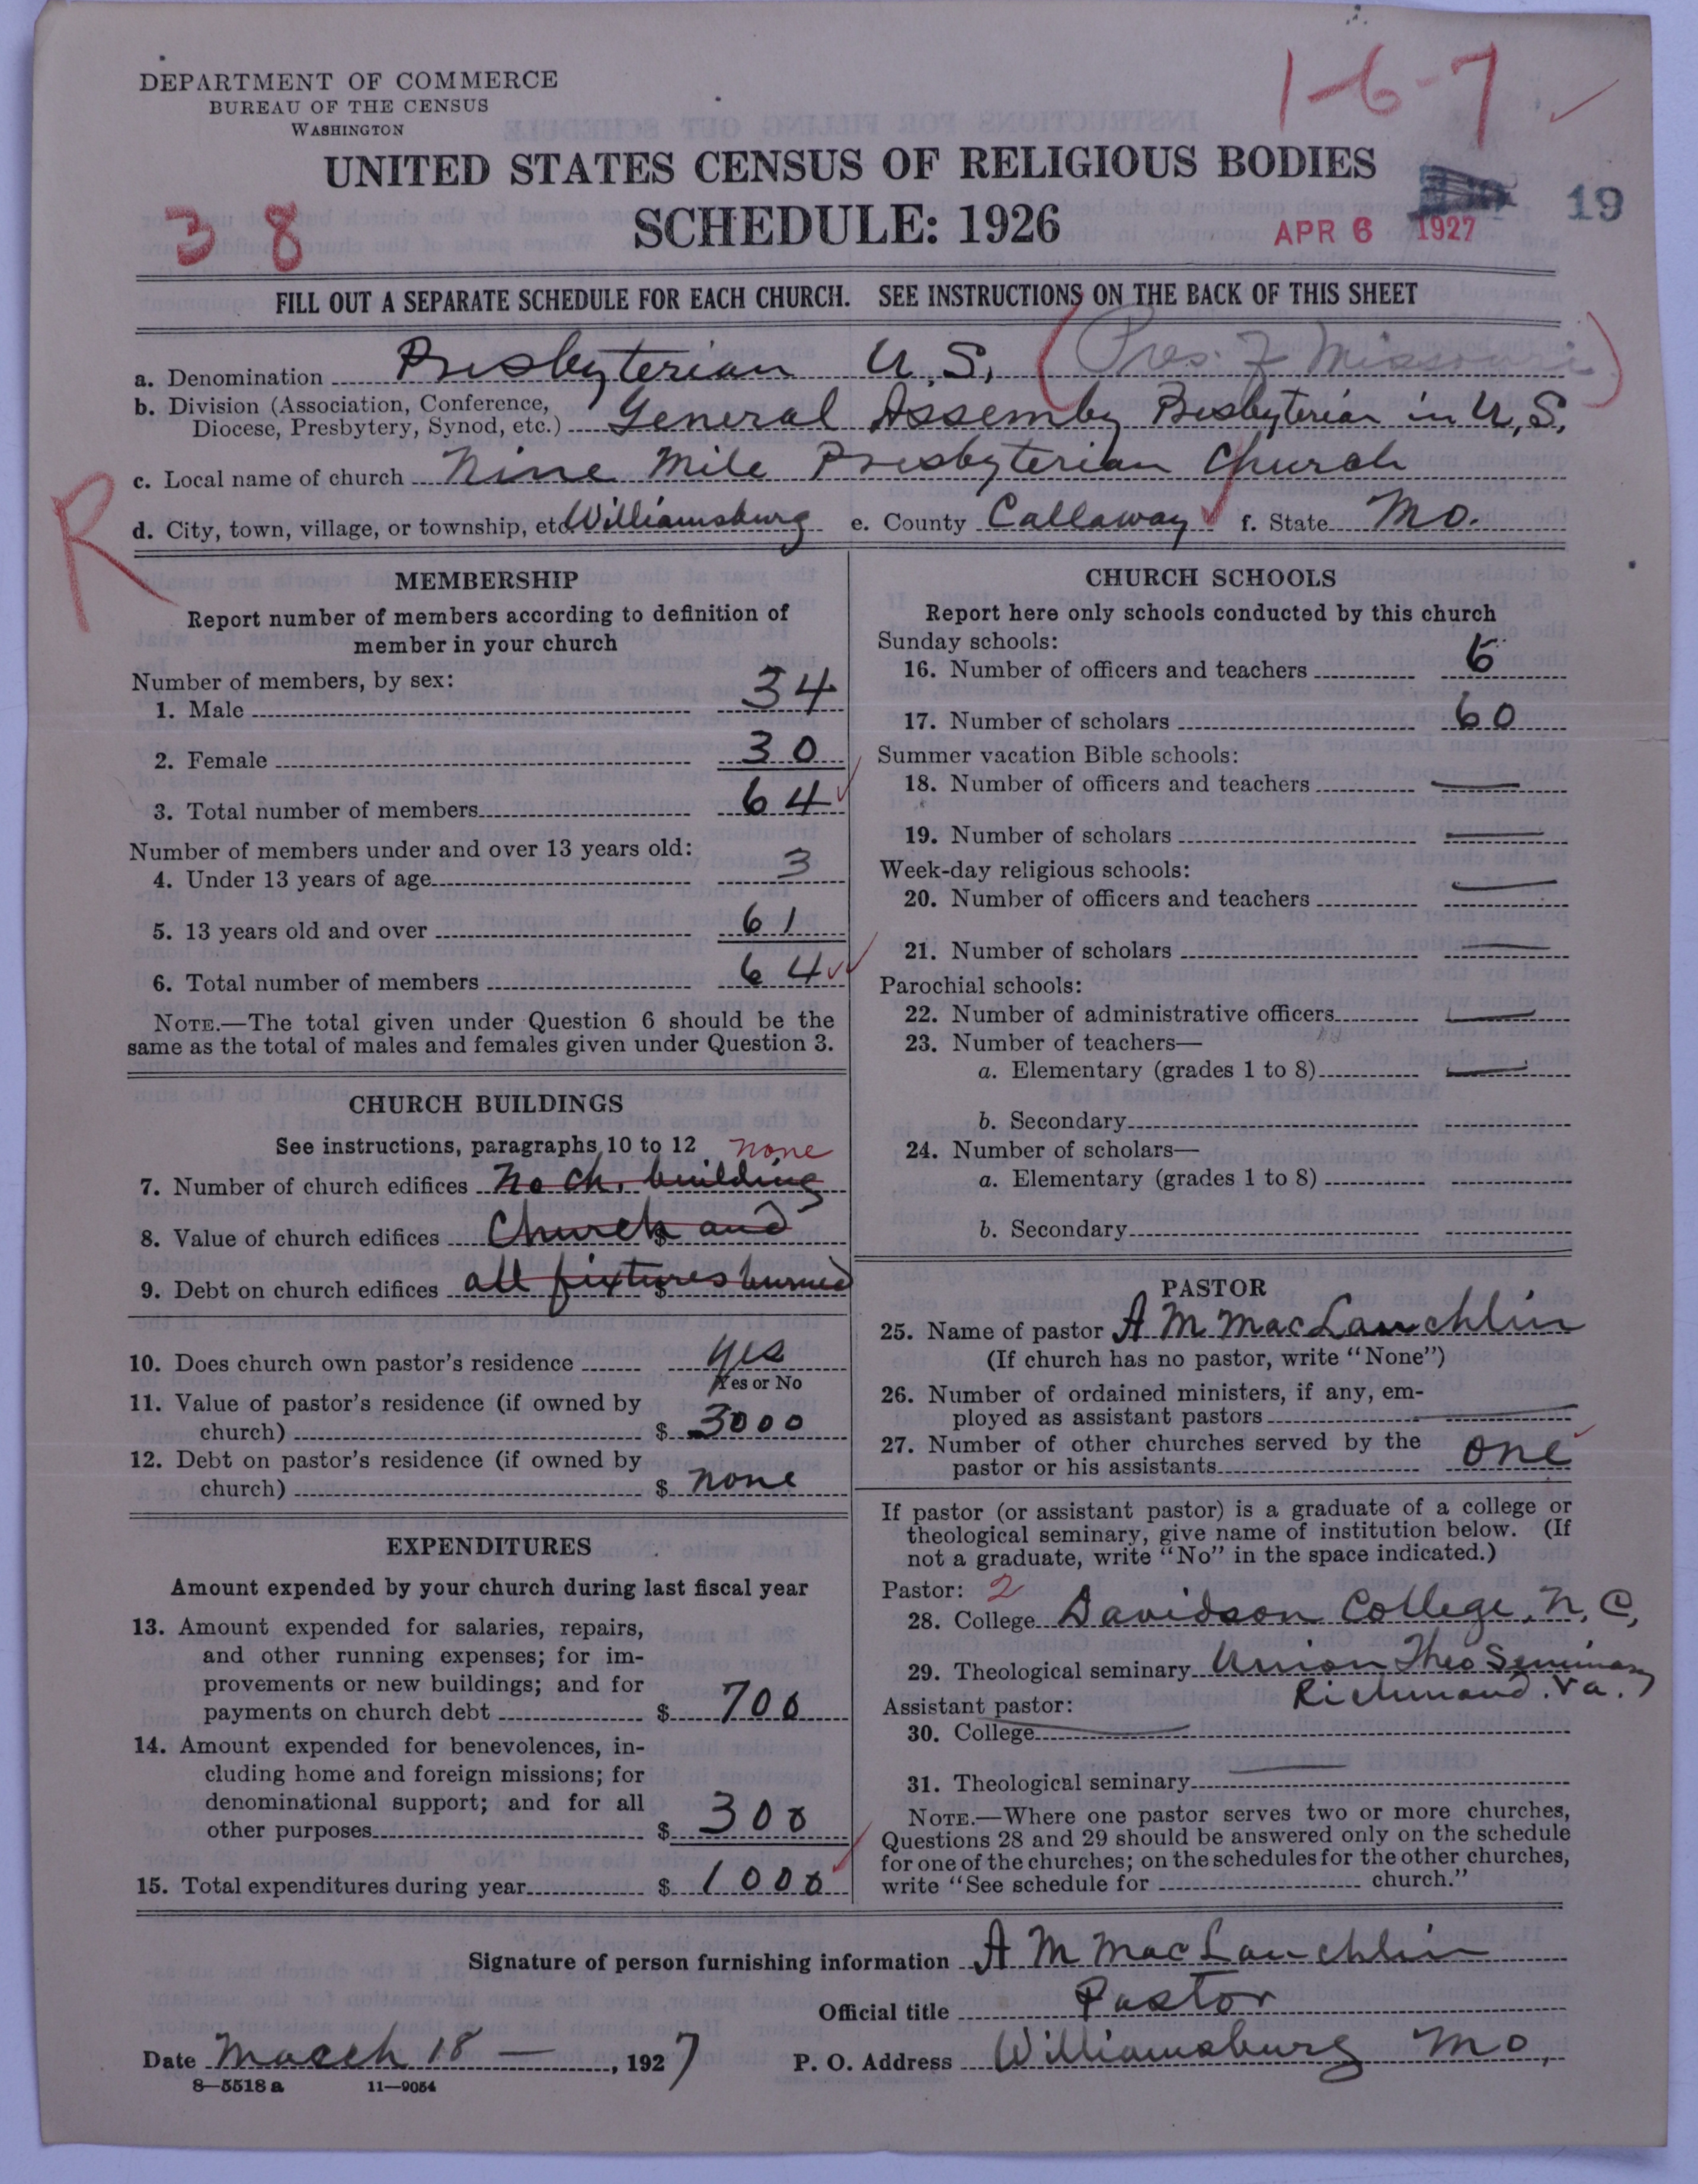 DEPARTMENT OF COMMERCE
BUREAU OF THE CENSUS
WASHINGTON
1-6-7
UNITED STATES CENSUS OF RELIGIOUS BODIES
38
SCHEDULE: 1926
APR 6 1927
19
FILL OUT A SEPARATE SCHEDULE FOR EACH CHURCH. SEE INSTRUCTIONS ON THE BACK OF THIS SHEET
a. Denomination Presbyterian U.S. (Pres. of Missouri)
b. Division (Association, Conference,
Diocese, Presbytery, Synod, etc.) General Assemby Presbyterian in U,S,
c. Local name of church Nine Mile Presbyterian Church
R
d. City, town, village, or township, etc. Williamsburg e. County Callaway f. State Mo.
MEMBERSHIP
Report number of members according to definition of
member in your church
Number of members, by sex:
1. Male 34
2. Female 30
3. Total number of members 64
Number of members under and over 13 years old:
4. Under 13 years of age 3
5. 13 years old and over 61
6. Total number of members 64
NOTE.—The total given under Question 6 should be the
same as the total of males and females given under Question 3.
CHURCH BUILDINGS
See instructions, paragraphs 10 to 12 none
7. Number of church edifices No ch. building
8. Value of church edifices $ Church and
9. Debt on church edifices $ all fixtures burned
10. Does church own pastor's residence yes
Yes or No
11. Value of pastor's residence (if owned by
church) $ 3000
12. Debt on pastor's residence (if owned by
church) $ none
EXPENDITURES
Amount expended by your church during last fiscal year
13. Amount expended for salaries, repairs,
and other running expenses; for im-
provements or new buildings; and for
payments on church debt $ 700
14. Amount expended for benevolences, in-
cluding home and foreign missions; for
denominational support; and for all
other purposes $ 300
15. Total expenditures during year $ 1000
CHURCH SCHOOLS
Report here only schools conducted by this church
Sunday schools:
16. Number of officers and teachers
17. Number of scholars 60
Summer vacation Bible schools:
18. Number of officers and teachers —
19. Number of scholars —
Week-day religious schools:
20. Number of officers and teachers —
21. Number of scholars —
Parochial schools:
22. Number of administrative officers —
23. Number of teachers—
a. Elementary (grades 1 to 8) —
b. Secondary
24. Number of scholars—
a. Elementary (grades 1 to 8)
b. Secondary
PASTOR
25. Name of pastor A M MacLauchlin
(If church has no pastor, write "None")
26. Number of ordained ministers, if any, em-
ployed as assistant pastors —
27. Number of other churches served by the
pastor or his assistants one
If pastor (or assistant pastor) is a graduate of a college or
theological seminary, give name of institution below. (If
not a graduate, write "No" in the space indicated.)
Pastor: 2
28. College Davidson College, N, C,
29. Theological seminary Union Theo Seminary
Richmond. Va.
Assistant pastor:
30. College —
31. Theological seminary —
NOTE.—Where one pastor serves two or more churches,
Questions 28 and 29 should be answered only on the schedule
for one of the churches; on the schedules for the other churches,
write "See schedule for church."
Signature of person furnishing information A M MacLauchlin
Official title Pastor
Date March 18 —, 1927 P. O. Address Williamsburg Mo,
8—5518 a 11—9054